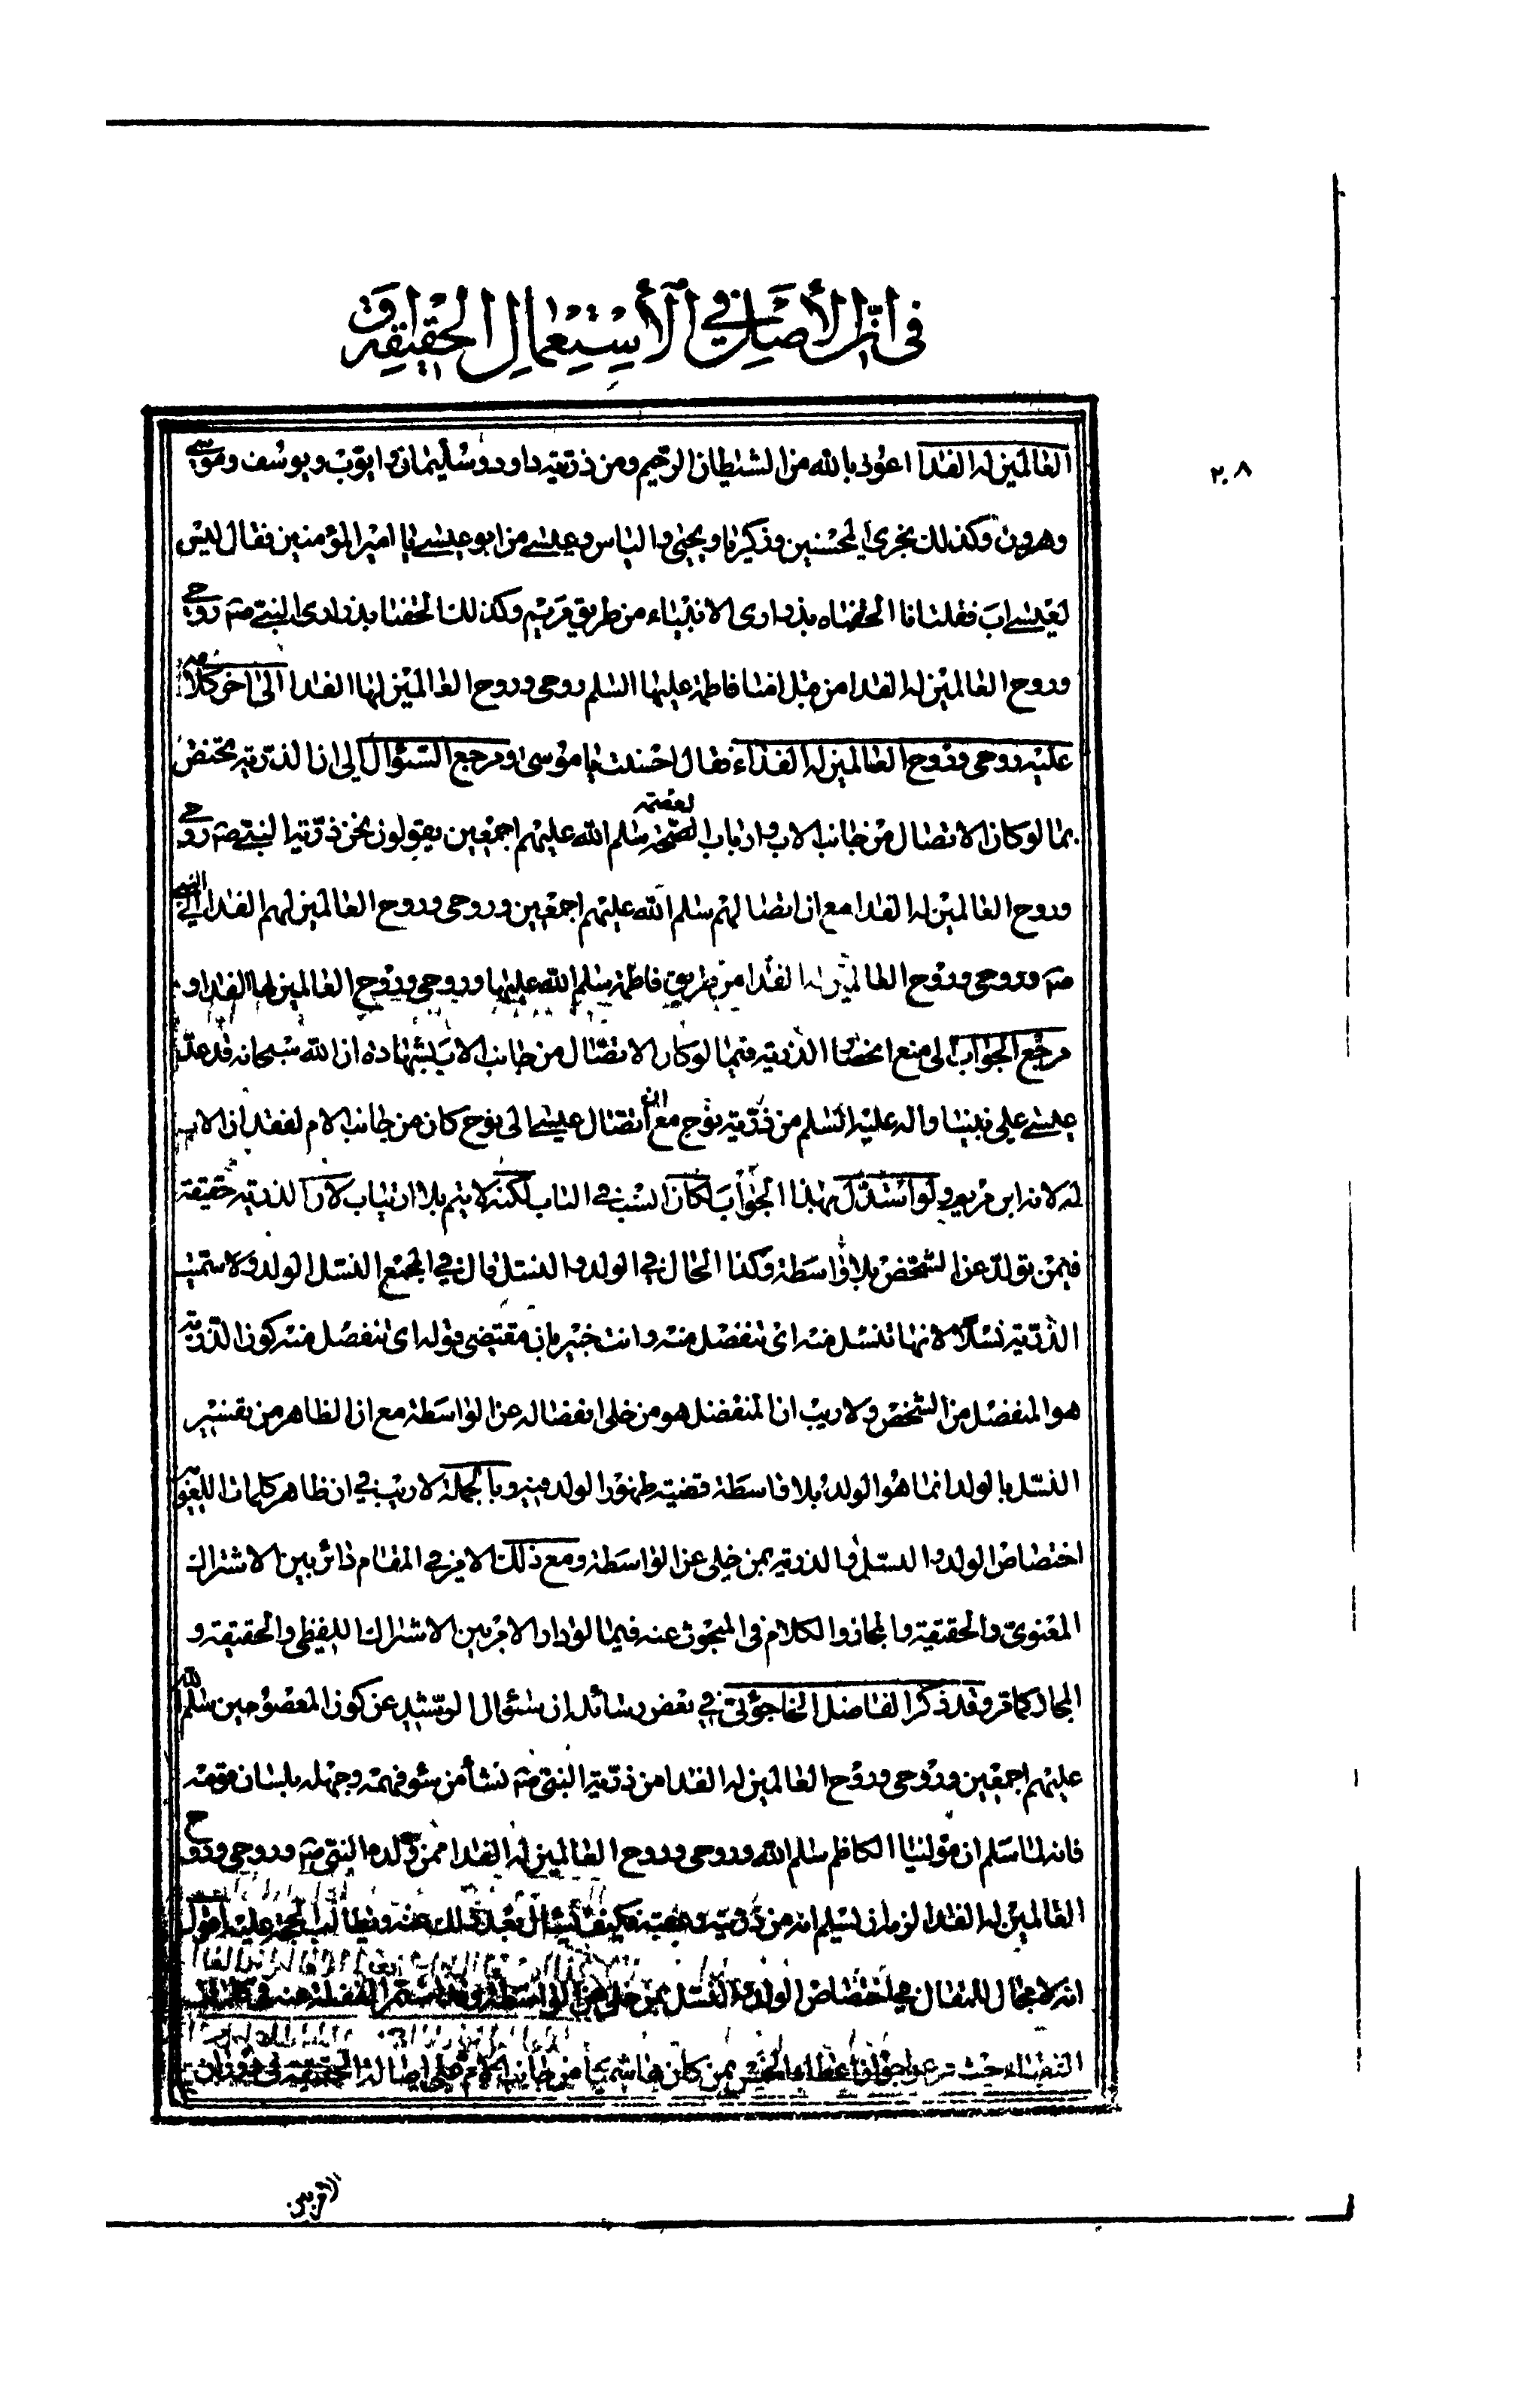 في ان الأصل في الأستعمال الحقيقة
٢٠٨
العالمين له الفدا اعوذ بالله من الشيطان الرجيم ومن ذريته داود وسليمان وايوب ويوسف وموسى
وهرون وكذلك نجزي المحسنين وزكريا ويحيى والياس وعيسى من ابو عيسى يا امير المؤمنين فقال ليس
لعيسى اب فقلت انا الحقناه بذراري الانبياء من طريق مريم وكذلك الحقنا بذراري النبي صم روحي
وروح العالمين له الفدا من قبل امنا فاطمة عليها السلم روحي وروح العالمين لها الفدا الى اخر كلامه
عليه روحي وروح العالمين له الفداء فقال احسنت يا موسى ومرجع السئوال الى ان الذرية يختص
بما لو كان الاتصال من جانب الاب وارباب العصمة سلم الله عليهم اجمعين يقولون نحن ذرية النبي صم روحي
وروح العالمين له الفدا مع ان اتصالهم سلم الله عليهم اجمعين وروحي وروح العالمين لهم الفدا الى النبي
صم وروحي وروح العالمين له الفدا من طريق فاطمة سلم الله عليها وروحي وروح العالمين لها الفدا و
مرجع الجواب الى منع اختصاص الذرية فيما لو كان الاتصال من جانب الاب بشهادة ان الله سبحانه قد عد
عيسى على نبينا واله عليه السلم من ذرية نوح مع ان اتصال عيسى الى نوح كان من جانب الام لفقدان الاب
له لانه ابن مريم ولو استدل بهذا الجواب لكان انسب في الباب لكنه لا يتم بلا ارتياب لان الذرية حقيقة
فيمن تولد عن الشخص بلا واسطة وكذا الحال في الولد والنسل قال في المجمع النسل الولد ولا سميت
الذرية نسلا لانها تنسل منه اى تنفصل منه وانت خبير بان مقتضى قوله اى تنفصل منه كون الذرية
هو المنفصل من الشخص ولا ريب ان المنفصل هو من خلى انفصاله عن الواسطة مع ان الظاهر من تفسير
النسل بالولد انما هو الولد بلا واسطة قضية ظهور الولد فيه وبالجملة لا ريب في ان ظاهر كلمات اللغويين
اختصاص الولد والنسل والذرية بمن خلى عن الواسطة ومع ذلك الامر في المقام دائر بين الاشتراك
المعنوي والحقيقة والمجاز والكلام في المبحوث عنه فيما لو دار الامر بين الاشتراك اللفظي والحقيقة و
المجاز كما مر وقد ذكر الفاضل الخاجوئي في بعض رسائله ان سئوال الرشيد عن كون المعصومين سلم الله
عليهم اجمعين وروحي وروح العالمين له الفدا من ذرية النبي صم نشأ من سوء فهمه وجهله بلسان قومه
فانه لما سلم ان مولينا الكاظم سلم الله وروحي وروح العالمين له الفدا ممن ولده النبي صم وروحي وروح
العالمين له الفدا لزمه ان تسليم انه من ذريته وعقبه فكيف يسأل بعد ذلك عنه ويطالب الحجة عليه اقول
انه لا مجال للمقال في اختصاص الولد والنسل بمن خلى عن الواسطة وقد استمر الغفلة عنه في كلمات
الفقهاء حيث جواز اعطاء الخمس بمن كان هاشميا من جانب الام على اصالة الحقيقة في